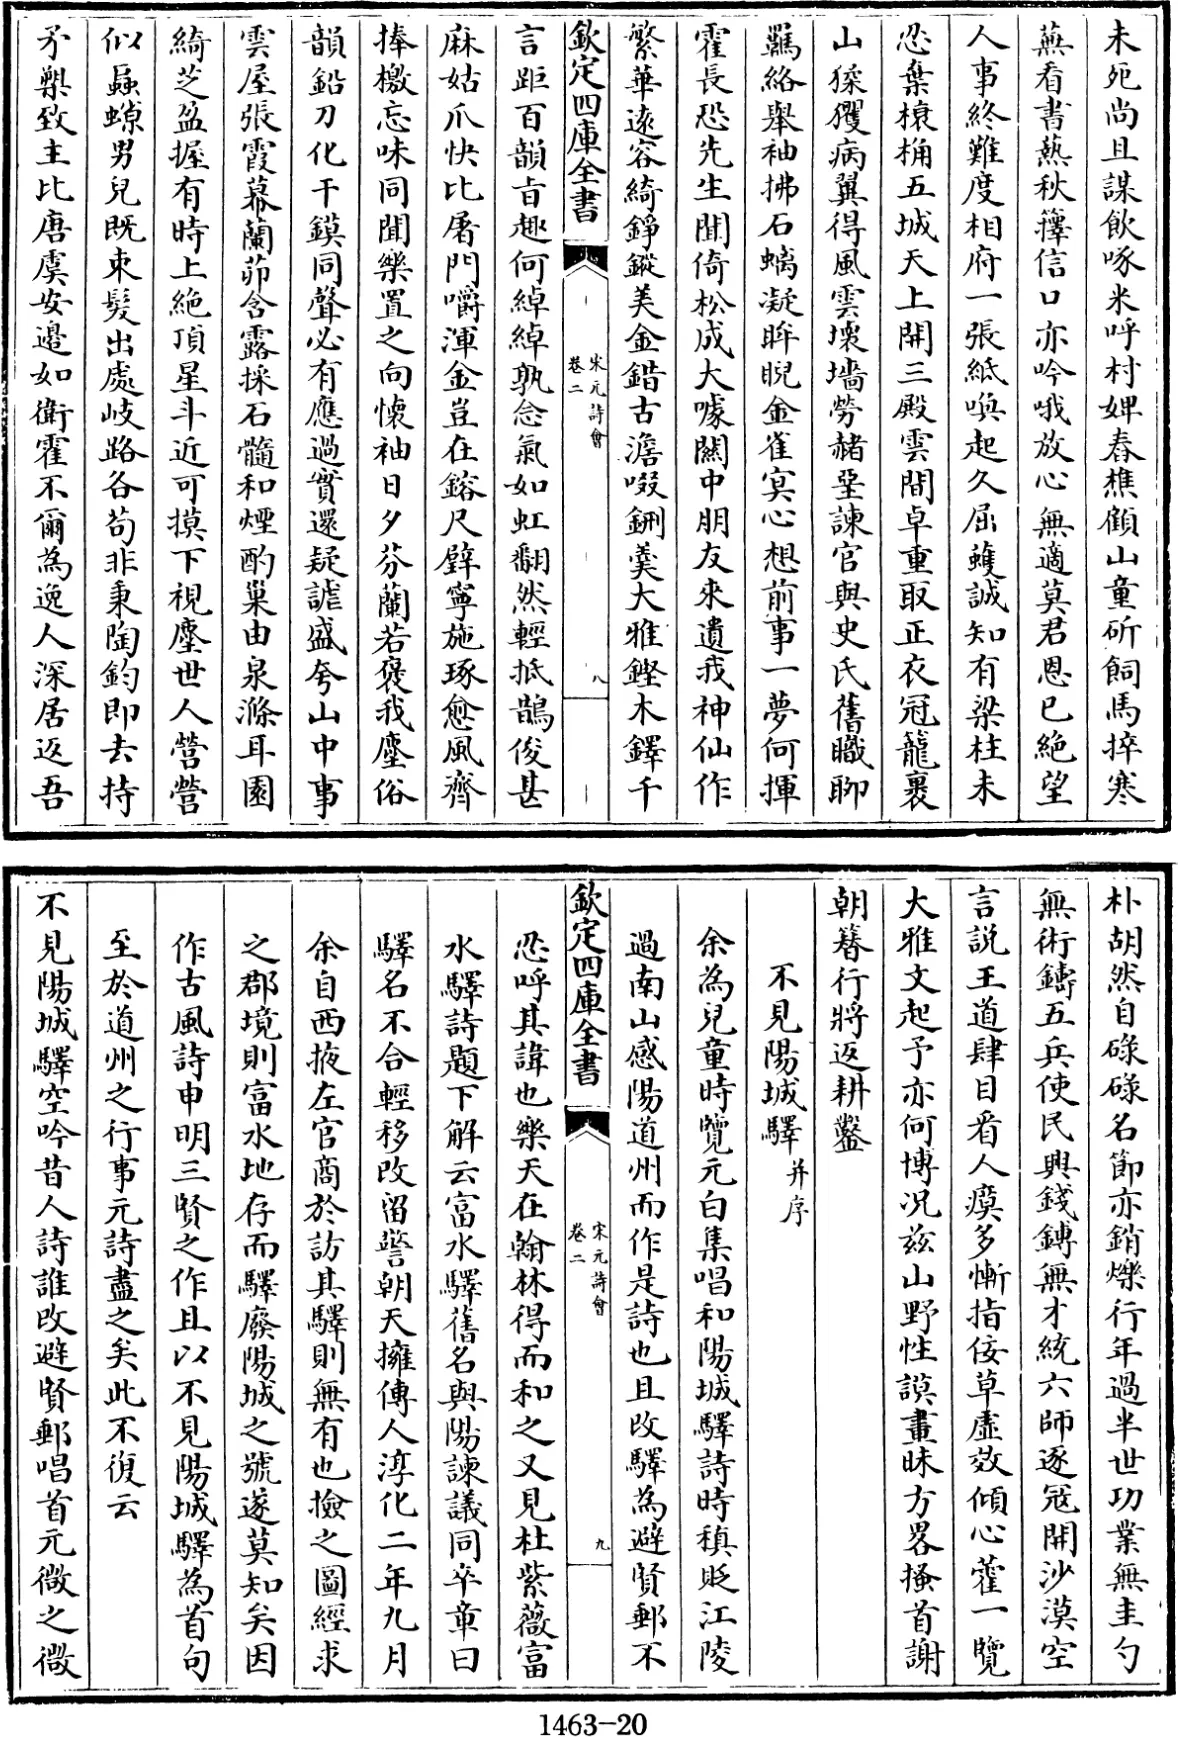 未死尚且謀飲啄米呼村婢舂樵顧山童斫飼馬捽寒
蕪看書爇秋籜信口亦吟哦放心無適莫君恩已絶望
人事終難度相府一張紙喚起久屈蠖誠知有梁柱未
忍棄榱桷五城天上開三殿雲間卓重取正衣冠籠裹
山猱玃病翼得風雲壞墻勞赭堊諫官與史氏舊職聊
羈絡舉袖拂石螭凝眸睨金雀寞心想前事一夢何揮
霍長恐先生聞倚松成大噱闗中朋友來遺我神仙作
繁華遠容綺錚鏦美金錯古澹啜鉶羮大雅鏗木鐸千
欽定四庫全書
宋元詩會
卷二
八
言距百韻㫖趣何綽綽孰念氣如虹翻然輕抵鵲俊甚
麻姑爪快比屠門嚼渾金豈在鎔尺璧寧施琢愈風齊
捧檄忘味同聞樂置之向懷袖日夕芬蘭若褒我塵俗
韻鉛刀化干鏌同聲必有應過實還疑謔盛夸山中事
雲屋張霞幕蘭茆含露採石髓和煙酌巢由泉滌耳園
綺芝盈握有時上絶頂星斗近可摸下視塵世人營營
似蝨蟓男兒既束髮出處岐路各茍非秉陶鈞即去持
矛槊致主比唐虞安邉如衛霍不爾為逸人深居返吾
朴胡然自碌碌名節亦銷爍行年過半世功業無圭勺
無術鑄五兵使民興錢鎛無才統六師逐冦開沙漠空
言說王道肆目看人瘼多慚指佞草虛效傾心藿一覽
大雅文起予亦何博况兹山野性謨畫昧方畧搔首謝
朝簪行將返耕鑿
不見陽城驛并序
余為兒童時覽元白集唱和陽城驛詩時稹貶江陵
過南山感陽道州而作是詩也且改驛為避賢郵不
欽定四庫全書
宋元詩會
卷二
九
忍呼其諱也樂天在翰林得而和之又見杜紫薇富
水驛詩題下解云富水驛舊名與陽諫議同卒章曰
驛名不合輕移改留警朝天擁傳人淳化二年九月
余自西掖左官商於訪其驛則無有也撿之圖經求
之郡境則富水地存而驛廢陽城之號遂莫知矣因
作古風詩申明三賢之作且以不見陽城驛為首句
至於道州之行事元詩盡之矣此不復云
不見陽城驛空吟昔人詩誰改避賢郵唱首元微之微
1463-20